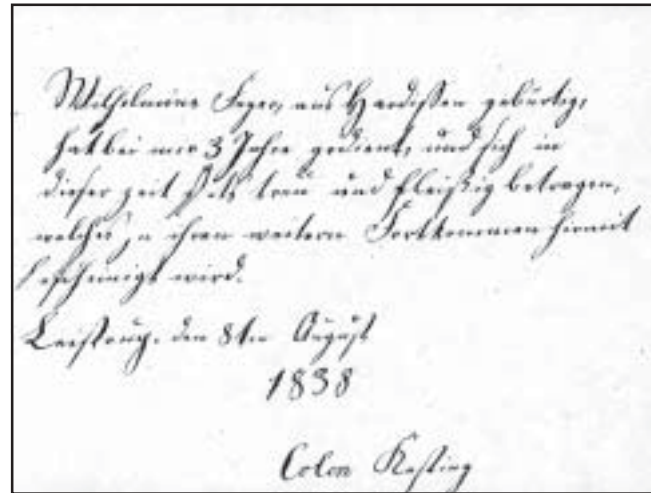 Wilhelmine Feger, aus Hardissen gebürtig,
hat bei mir 3 Jahre gedient, und sich in
dieser Zeit stets treu und fleißig betragen,
welches zu ihren weitern Fortkommen hirmit
bescheinigt wird.
Leistrup, den 8ten August
1838
Colon Kesting